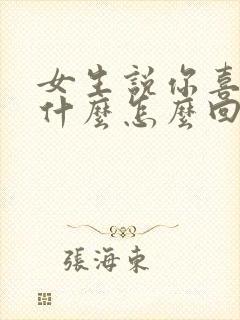 女生說你喜
什麼怎麼回
張海東